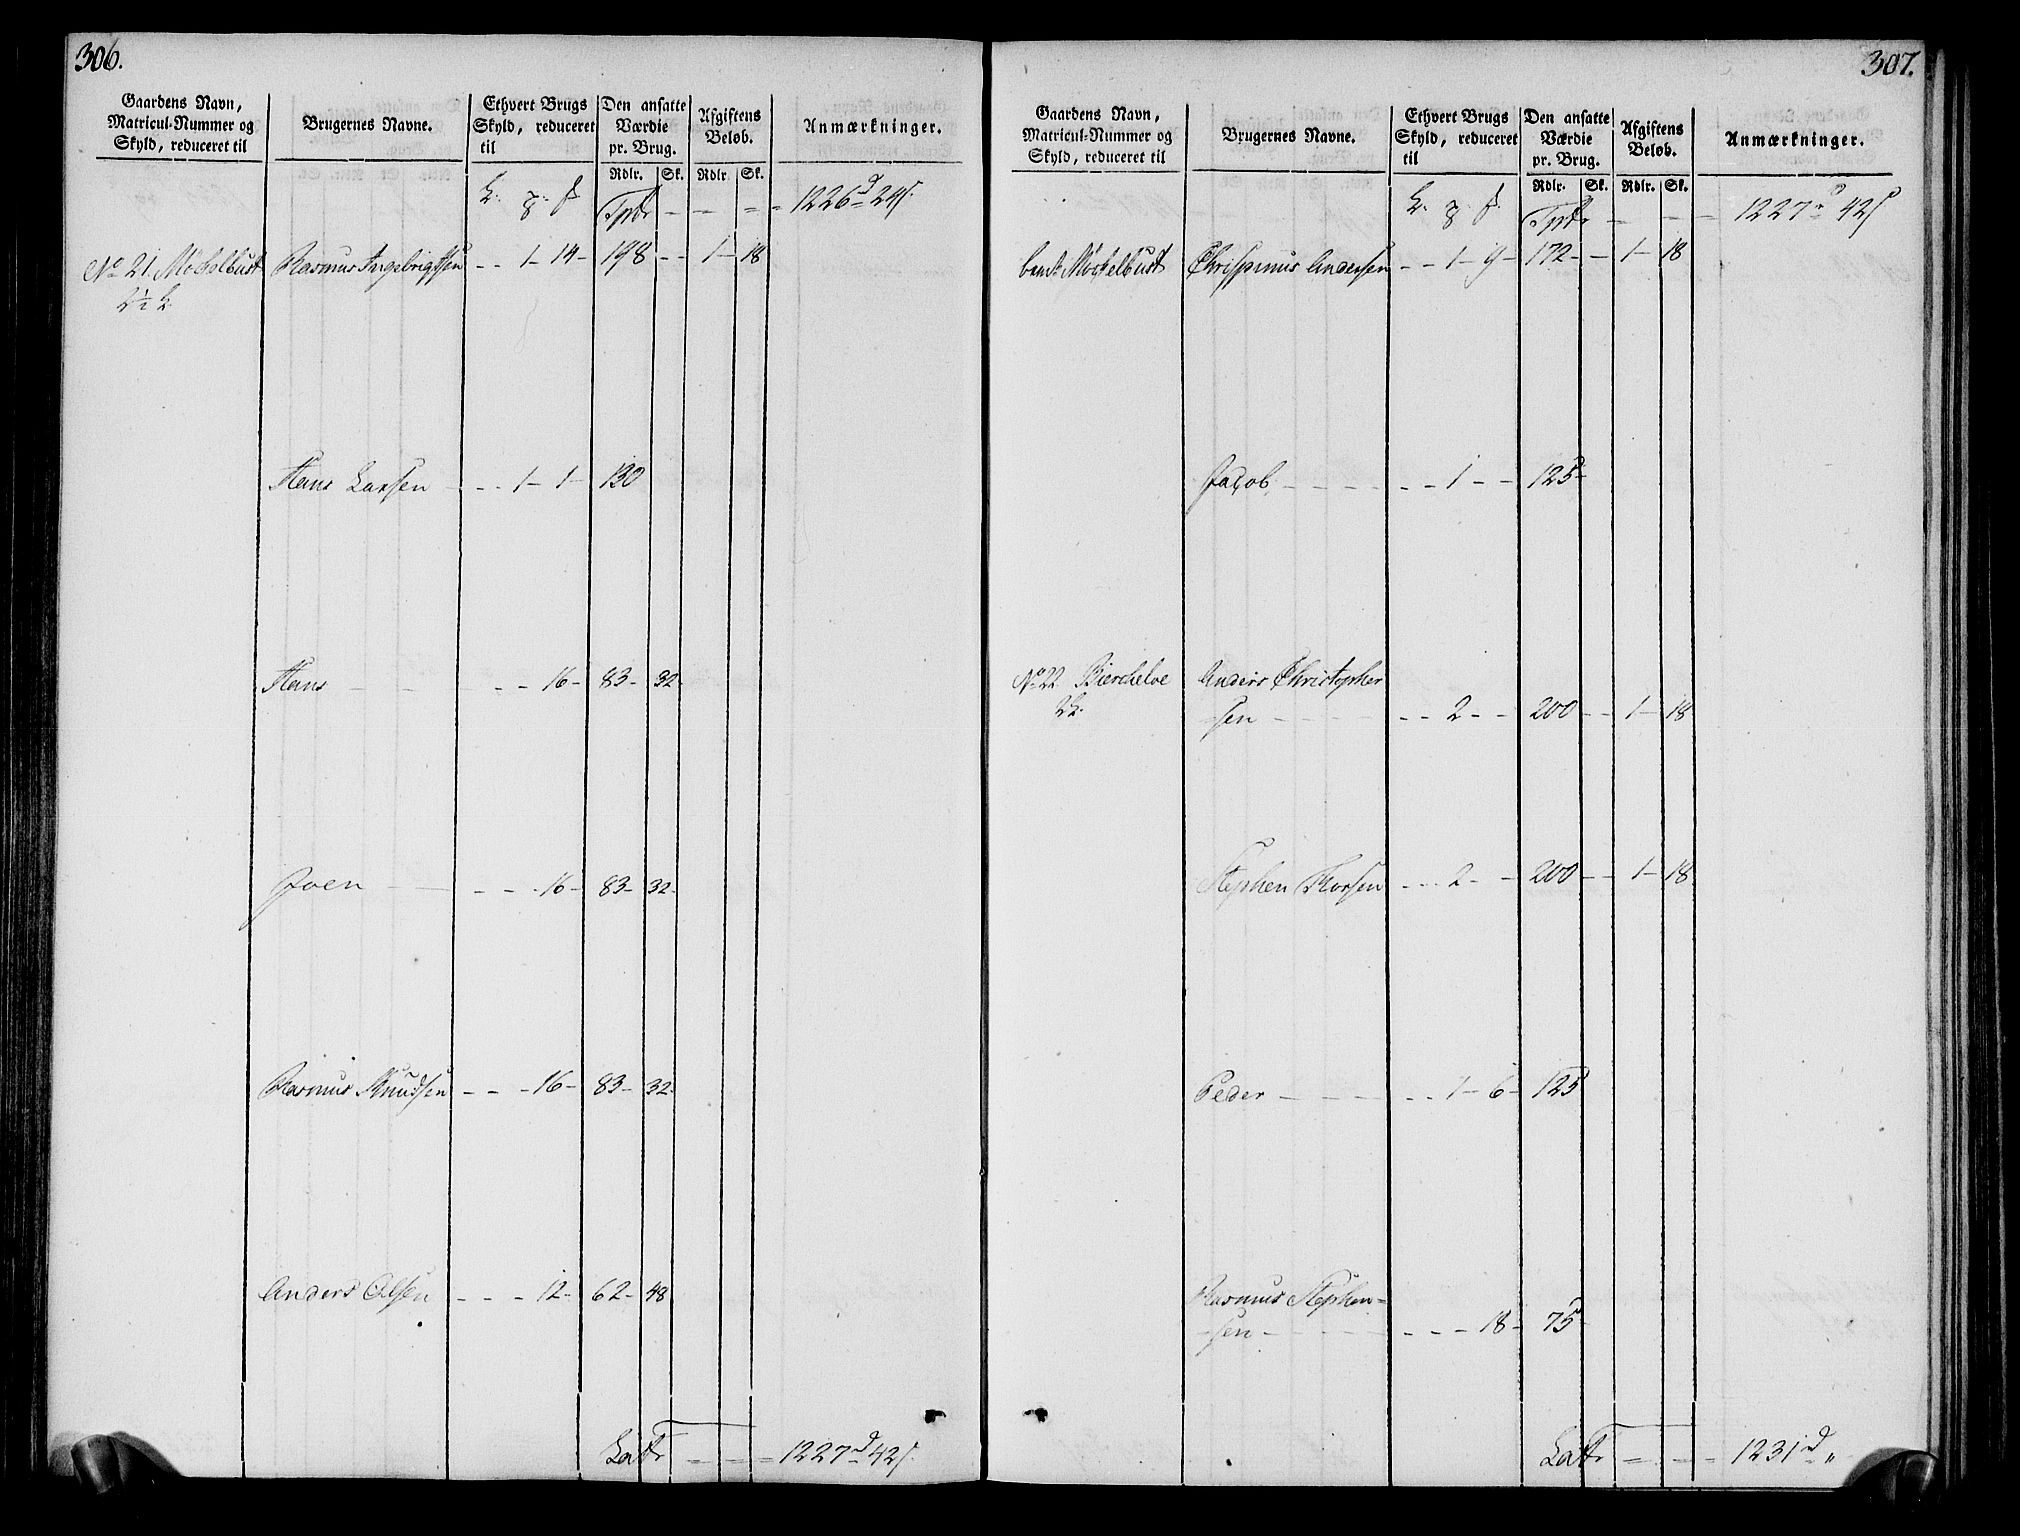 306.
Gaardens Navn,
Matricul-Nummer og
Skyld, reduceret til
Brugernes Navne.
Ethvert Brugs
Skyld, reduceret
til
Den ansatte
Værdie
pr. Brug.
Rdlr. Sk.
Afgiftens
Beløb.
Rdlr. Sk.
Anmærkninger.
Tptr - - - - 1226 d 24 s.
No 21 Møchelbust Rasmus Ingebrigtsen - - 1 - 14 - 198 - - 1 - 18
Hans Larsen - - - 1 - 1 - 130
Hans - - - - 16 - 83 - 32 -
Joen - - - - 16 - 83 - 32 -
Rasmus Knudsen - - - 16 - 83 - 32 -
Anders Olsen - - - 12 - 62 - 48
Latr - - - 1227 d 42 s.
307.
Gaardens Navn,
Matricul-Nummer og
Skyld, reduceret til
Brugernes Navne.
Ethvert Brugs
Skyld, reduceret
til
Den ansatte
Værdie
pr. Brug.
Rdlr. Sk.
Afgiftens
Beløb.
Rdlr. Sk.
Anmærkninger.
Tptr - - - 1227 d 42 s
Møchelbust Andersen - - 1 - 9 - 172 - - 1 - 18
Jacob - - - - 1 - - 125 -
No 22 Biercheloe Anders Christopher
-sen - - - - 2 - - 200 - - 1 - 18
Stephen Thorsen - - - 2 - - 200 - - 1 - 18
Peder - - - - 1 - 6 - 125
Rasmus Stephen=
-sen - - - - 18 - 75 -
Latr - - - 1231 d "